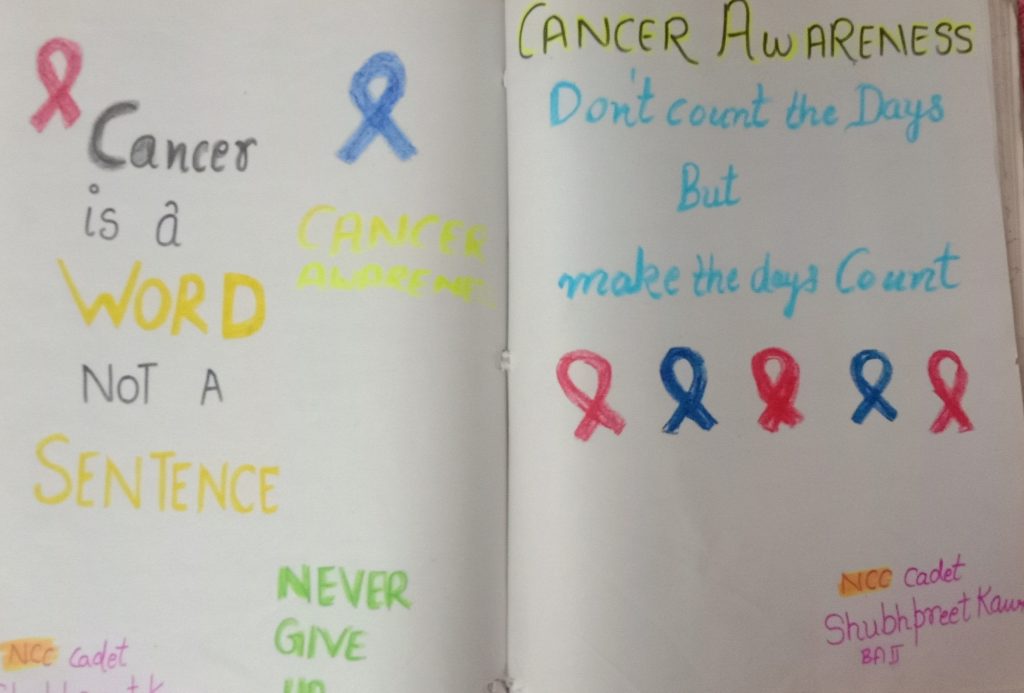 Cancer
is a
WORD
NOT A
SENTENCE
CANCER
NEVER
GIVE
UP
NCC Cadet
CANCER AWARENESS
Don't count the Days
But
make the days Count
NCC Cadet
Shubhpreet Kaur
BA II